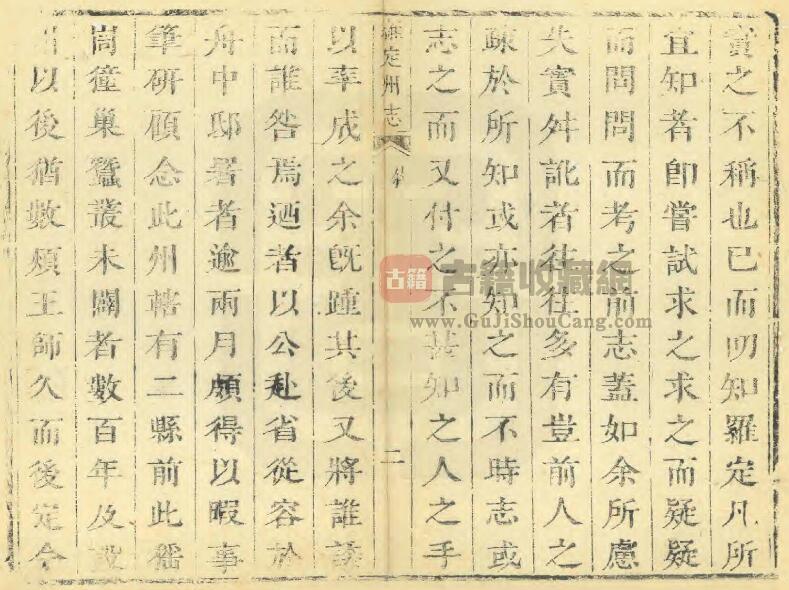 實之不稱也已而明知羅定凡所
宜知者卽嘗試求之求之而疑疑
而問問而考之前志蓋如余所慮
失實舛訛者往往多有豈前人之
疎於所知或亦知之而不時志或
志之而又付之不甚知之人之手
羅定州志
二
以幸成之余旣踵其後又將誰諉
而誰咎焉迺者以公赴省從容於
舟中邸署者逾兩月頗得以暇事
筆硏顧念此州轄有二縣前此猺
峝獞巢蠶叢未闢者數百年及設
以後猶數煩王師久而後定今
古籍
古籍收藏網
www.GuJiShouCang.com